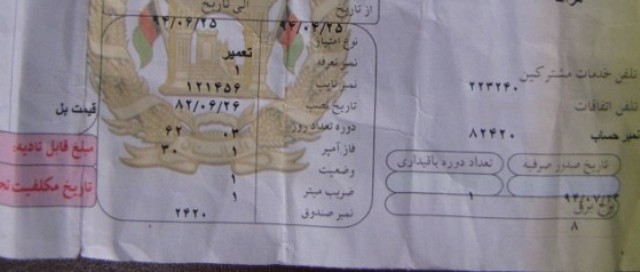 از تاریخ الی تاریخ
۹۴/۰۴/۲۵ ۹۴/۰۶/۲۵
نوع امتیاز تعمیر
نمبر تعرفه ۱
نمبر ثابت ۱۲۱۴۵۶
تاریخ نصب ۸۲/۰۶/۲۶
دوره تعداد روز ۰۳ ۶۲
فاز آمپر ۱ ۳۰
وضعیت ۱
ضریب میتر ۱
نمبر صندوق ۲۴۲۰
تلفن خدمات مشترکین
۲۲۳۲۴۰
تلفن اتفاقات
نمبر حساب ۸۲۴۲۰
تاریخ صدور صرفیه تعداد دوره باقیداری
۱
نرخ برق
۸
قیمت بل
مبلغ قابل تادیه:
تاریخ مکلفیت